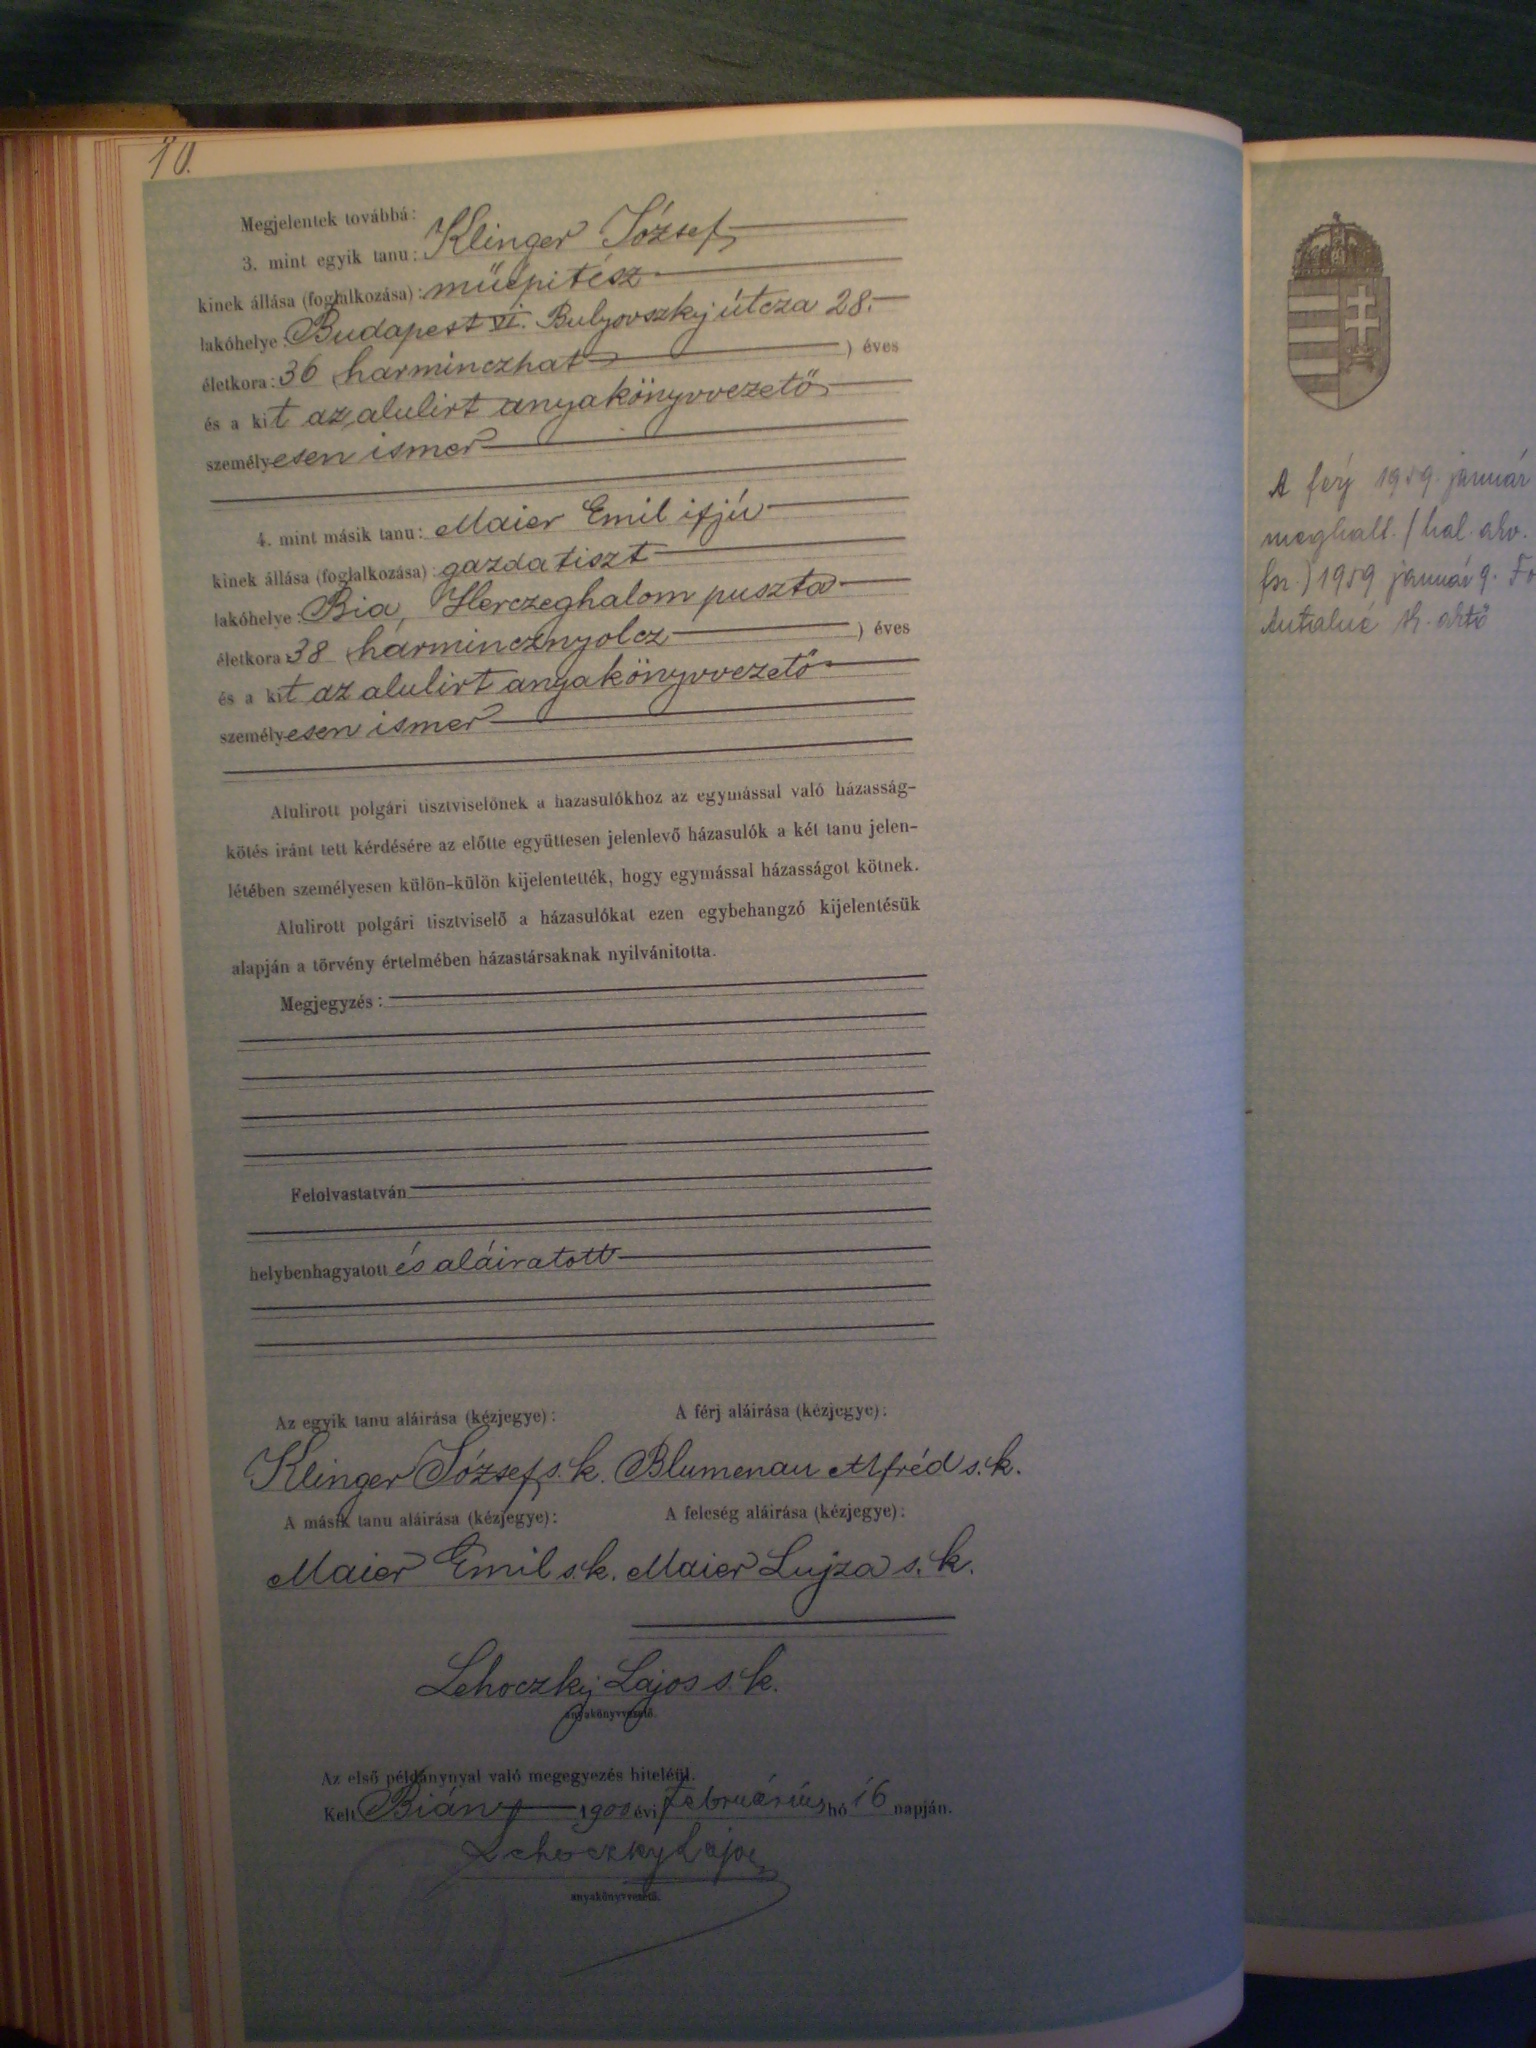 10.
Megjelentek továbbá:
3. mint egyik tanu: Klinger József
kinek állása (foglalkozása): műépitész
lakóhelye: Budapest VI. Bulyovszky útcza 28.
életkora: 36 harminczhat ) éves
és a kit az alulirt anyakönyvvezető
személyesen ismer
4. mint másik tanu: Maier Emil ifjú
kinek állása (foglalkozása): gazdatiszt
lakóhelye: Bia, Herczeghalom puszta
életkora: 38 harmincznyolcz ) éves
és a kit az alulirt anyakönyvvezető
személyesen ismer
Alulirott polgári tisztviselőnek a házasulókhoz az egymással való házasság-
kötés iránt tett kérdésére az előtte együttesen jelenlevő házasulók a két tanu jelen-
létében személyesen külön-külön kijelentették, hogy egymással házasságot kötnek.
Alulirott polgári tisztviselő a házasulókat ezen egybehangzó kijelentésük
alapján a törvény értelmében házastársaknak nyilvánitotta.
Megjegyzés:
Felolvastatván
helybenhagyatott és aláiratott
Az egyik tanu aláirása (kézjegye): A férj aláirása (kézjegye):
Klinger József s. k. Blumenau Alfréd s. k.
A másik tanu aláirása (kézjegye): A feleség aláirása (kézjegye):
Maier Emil s. k. Maier Lujza s. k.
Lehoczky Lajos s. k.
anyakönyvvezető.
Az első példánynyal való megegyezés hiteléül.
Kelt Bián 1900 évi februárius hó 16 napján.
Lehoczky Lajos
anyakönyvvezető.
A férj 1959. január
meghalt. / hal. akv.
1959 január 9.